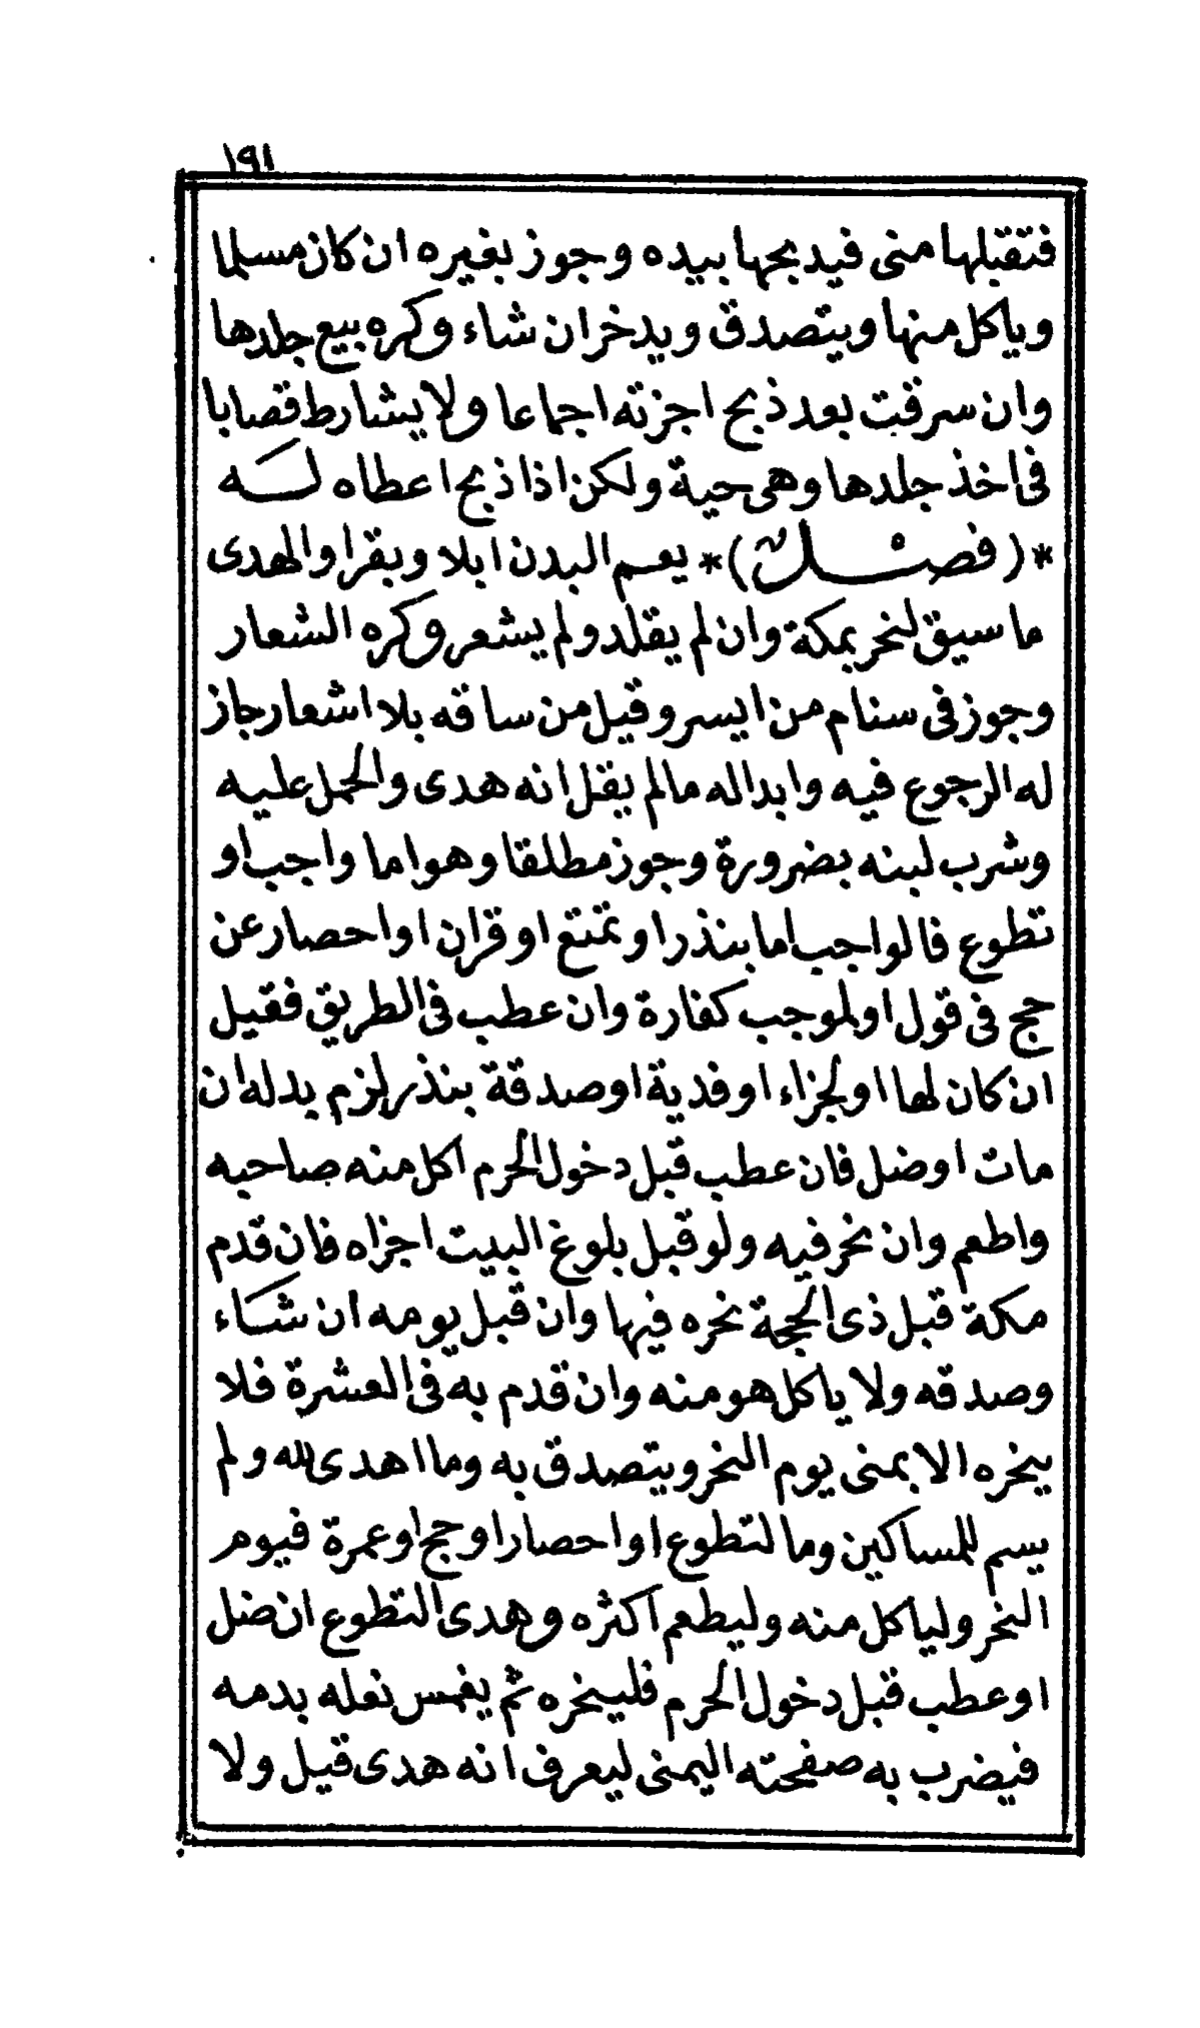 ١٩١
فتقبلها منى فيذبحها بيده وجوز بغيره ان كان مسلما
وياكل منها ويتصدق ويدخر ان شاء وكره بيع جلدها
وان سرقت بعد ذبح اجزته اجماعا ولا يشارط قصابا
فى اخذ جلدها وهى حية ولكن اذا ذبح اعطاه لــه
*(فصل)* يعم البدن ابلا وبقرا والهدى
ما سيق لنحر بمكة وان لم يقلد ولم يشعر وكره الشعار
وجوز فى سنام من ايسر وقيل من ساقه بلا اشعار جاز
له الرجوع فيه وابداله مالم يقل انه هدى والحمل عليه
وشرب لبنه بضرورة وجوز مطلقا وهو اما واجب او
تطوع فالواجب اما بنذر او تمتع او قران او احصار عن
حج فى قول او لموجب كفارة وان عطب فى الطريق فقيل
ان كان لها او لجزاء او فدية او صدقة بنذر لزم بدله ان
مات او ضل فان عطب قبل دخول الحرم اكل منه صاحبه
واطعم وان نحر فيه ولو قبل بلوغ البيت اجزاه فان قدم
مكة قبل ذى الحجة نحره فيها وان قبل يومه ان شاء
وصدقه ولا ياكل هو منه وان قدم به فى العشرة فلا
ينحره الا بمنى يوم النحر ويتصدق به وما اهدى لله ولم
يسم للمساكين وما لتطوع او احصار او حج او عمرة فيوم
النحر ولياكل منه وليطعم اكثره وهدى التطوع ان ضل
او عطب قبل دخول الحرم فلينحره ثم يغمس نعله بدمه
فيضرب به صفحته اليمنى ليعرف انه هدى قيل ولا